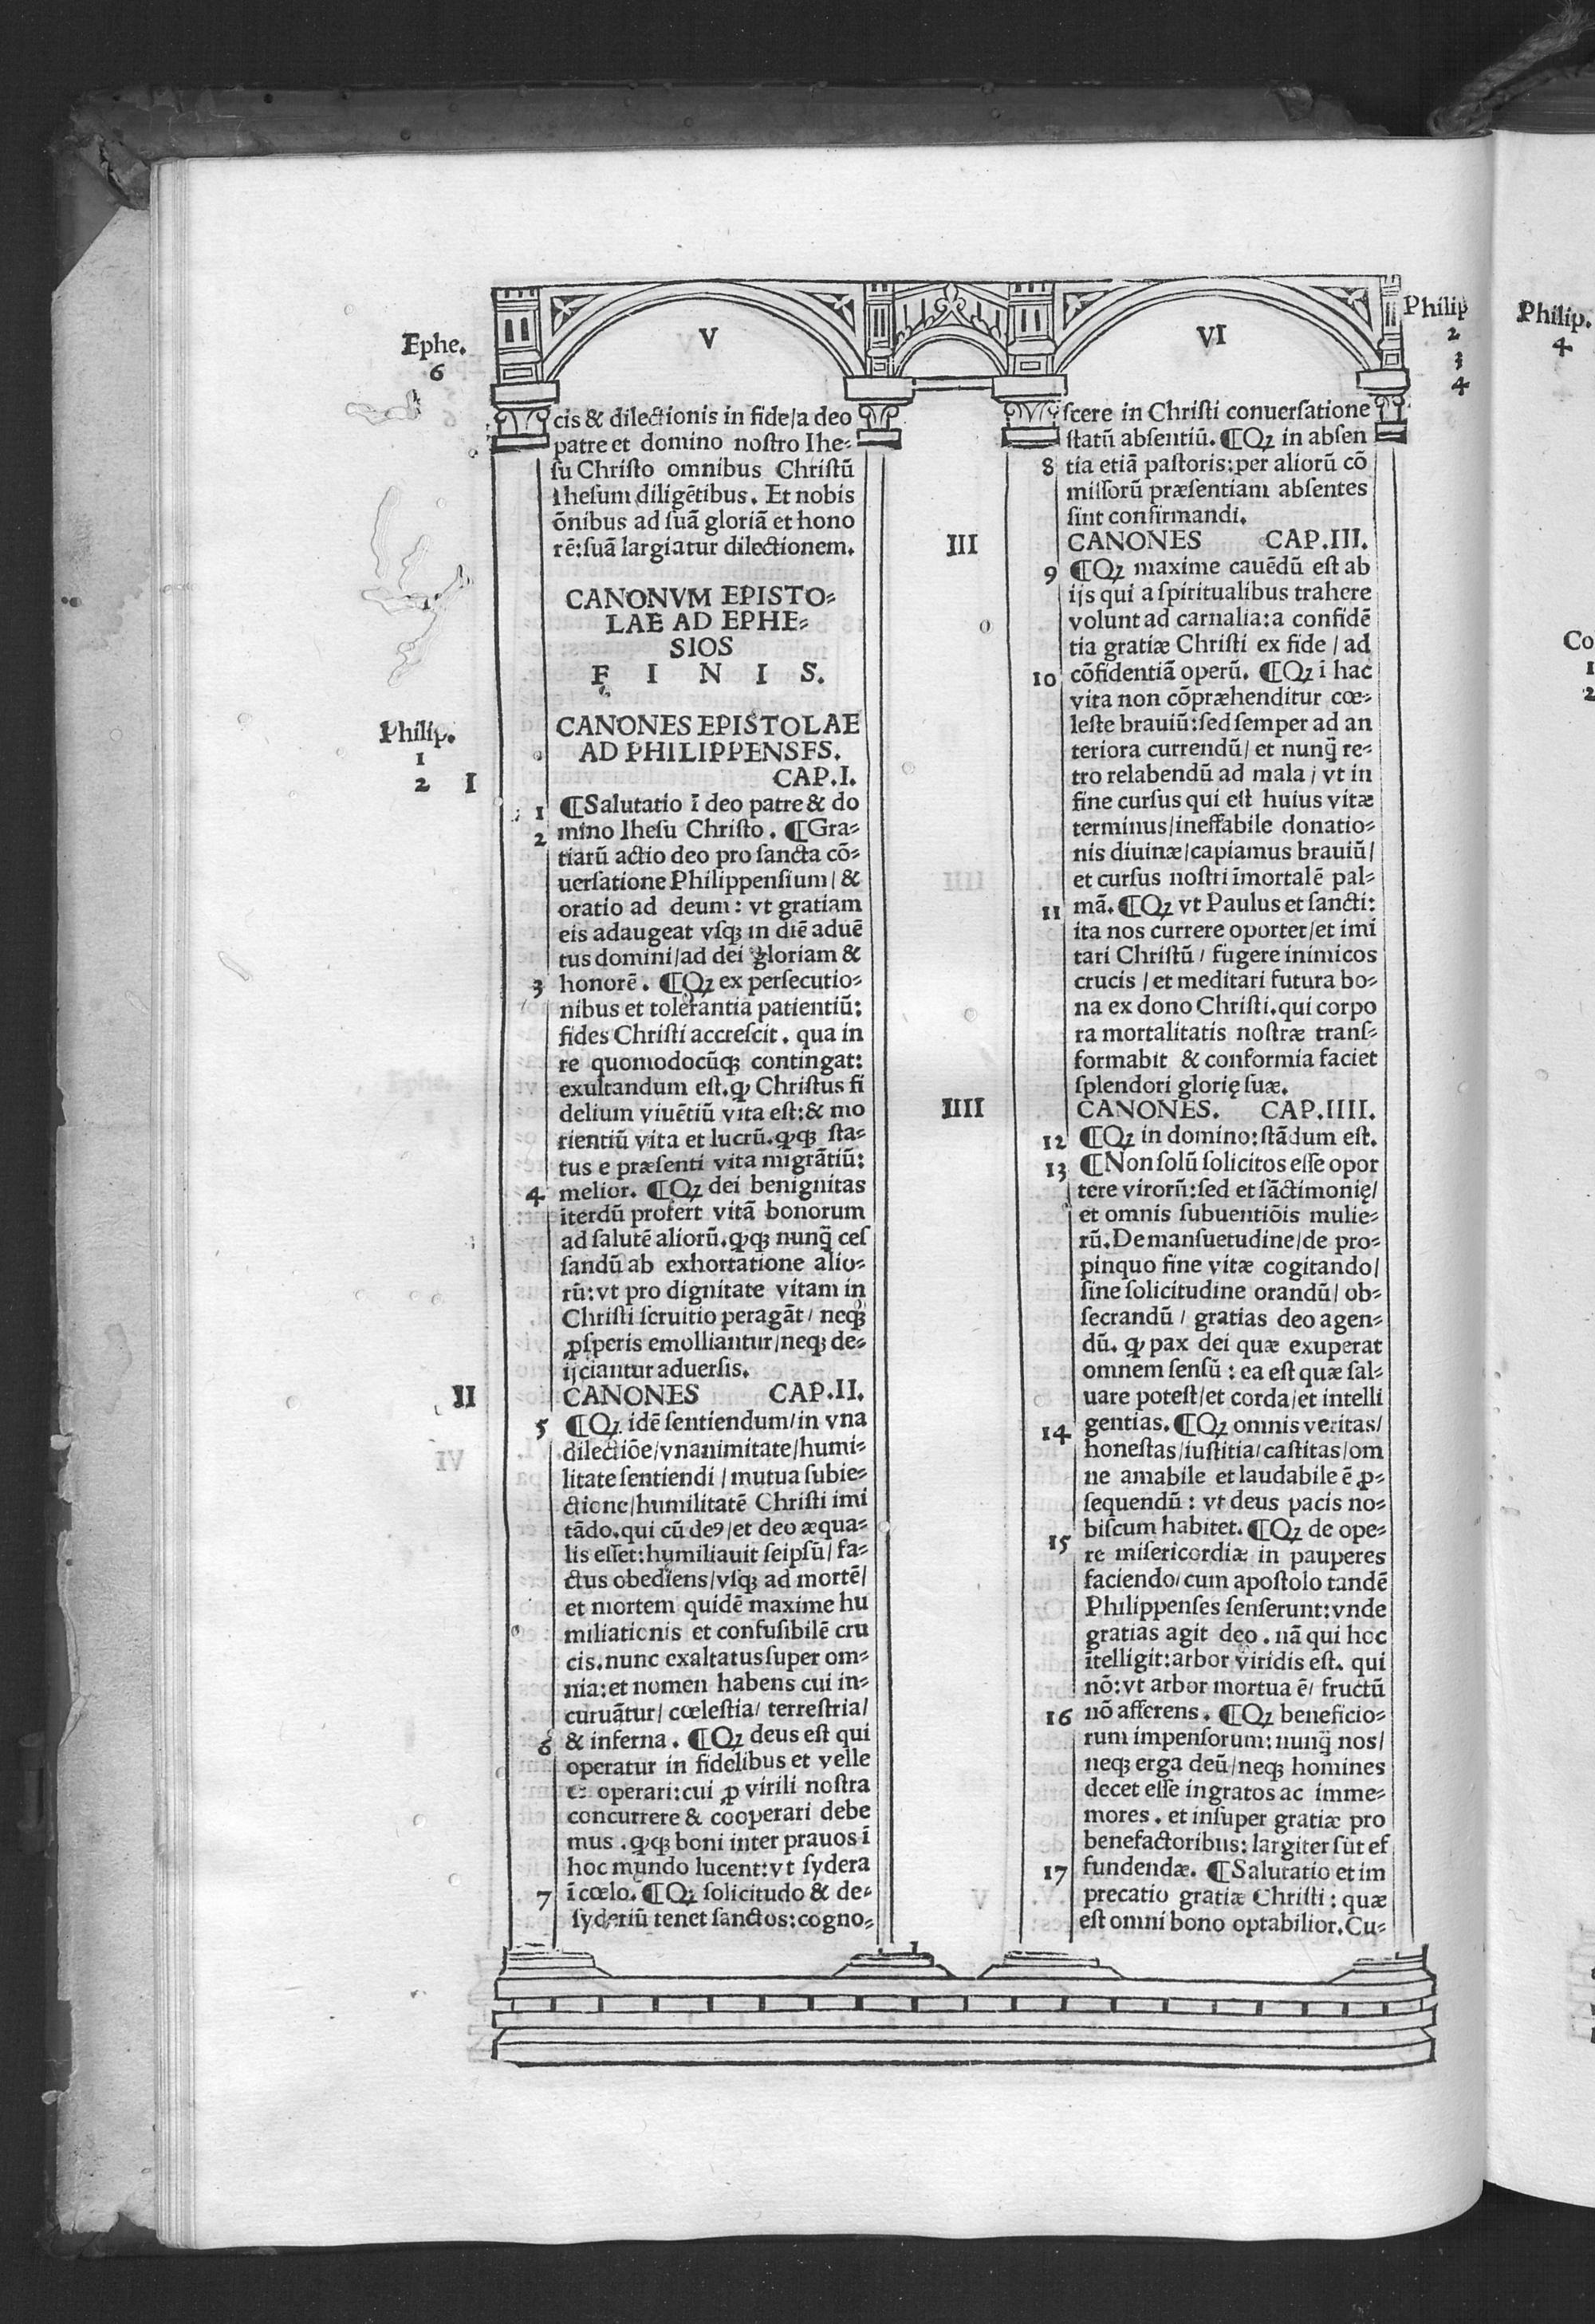 Ephe.
6
V
cis & dilectionis in fide/a deo
patre et domino nostro Ihe-
su Christo omnibus Christū
Ihesum diligētibus. Et nobis
ōnibus ad suā gloriā et hono
rē:suā largiatur dilectionem.
CANONVM EPISTO-
LAE AD EPHE-
SIOS
F I N I S.
Philip.
1
2
CANONES EPISTOLAE
AD PHILIPPENSES.
I CAP.I.
1 ¶Salutatio ī deo patre & do
2 mino Ihesu Christo. ¶Gra-
tiarū actio deo pro sancta cō-
uersatione Philippensium/ &
oratio ad deum: vt gratiam
eis adaugeat vsqꝫ in diē aduē
tus domini/ad dei gloriam &
3 honorē. ¶Qꝫ ex persecutio-
nibus et tolerantia patientiū:
fides Christi accrescit. qua in
re quomodocūqꝫ contingat:
exultandum est.ꝙ Christus fi
delium viuētiū vita est:& mo
rientiū vita et lucrū.ꝙqꝫ sta-
tus e præsenti vita migrātiū:
4 melior. ¶Qꝫ dei benignitas
īterdū profert vitā bonorum
ad salutē aliorū.ꝙqꝫ nunq̄ ces
sandū ab exhortatione alio-
rū:vt pro dignitate vitam in
Christi seruitio peragāt/ neqꝫ
ꝓsperis emolliantur/neqꝫ de-
ijciantur aduersis.
II CANONES CAP.II.
5 ¶Qꝫ idē sentiendum/in vna
dilectiōe/vnanimitate/humi-
litate sentiendi/mutua subie-
ctione/humilitatē Christi imi
tādo.qui cū deꝰ/et deo æqua-
lis esset:humiliauit seipsū/fa-
ctus obediens/vsqꝫ ad mortē/
et mortem quidē maxime hu
miliationis et confusibilē cru
cis.nunc exaltatus super om-
nia:et nomen habens cui in-
curuātur/ cœlestia/ terrestria/
6 & inferna. ¶Qꝫ deus est qui
operatur in fidelibus et velle
et operari:cui ꝓ virili nostra
concurrere & cooperari debe
mus.ꝙqꝫ boni inter prauos ī
hoc mundo lucent:vt sydera
7 ī cœlo. ¶Qꝫ solicitudo & de-
syderiū tenet sanctos:cogno-
Philip
2
3
4
VI
scere in Christi conuersatione
statū absentiū. ¶Qꝫ in absen
8 tia etiā pastoris:per aliorū cō
missorū præsentiam absentes
sint confirmandi.
III CANONES CAP.III.
9 ¶Qꝫ maxime cauēdū est ab
ijs qui a spiritualibus trahere
volunt ad carnalia:a confidē
tia gratiæ Christi ex fide/ ad
10 cōfidentiā operū. ¶Qꝫ ī hac
vita non cōpræhenditur cœ-
leste brauiū:sed semper ad an
teriora currendū/ et nunq̄ re-
tro relabendū ad mala/ vt in
fine cursus qui est huius vitæ
terminus/ineffabile donatio-
nis diuinæ/capiamus brauiū/
et cursus nostri īmortalē pal-
11 mā. ¶Qꝫ vt Paulus et sancti:
ita nos currere oportet/et imi
tari Christū/ fugere inimicos
crucis/et meditari futura bo-
na ex dono Christi.qui corpo
ra mortalitatis nostræ trans-
formabit & conformia faciet
splendori glorię suæ.
IIII CANONES. CAP.IIII.
12 ¶Qꝫ in domino:stādum est.
13 ¶Non solū solicitos esse opor
tere virorū:sed et sāctimonię/
et omnis subuentiōis mulie-
rū.De mansuetudine/de pro-
pinquo fine vitæ cogitando/
sine solicitudine orandū/ ob-
secrandū/ gratias deo agen-
dū. ꝙ pax dei quæ exuperat
omnem sensū: ea est quæ sal-
uare potest/et corda/et intelli
14 gentias. ¶Qꝫ omnis veritas/
honestas/iustitia/castitas/om
ne amabile et laudabile ē ꝓ-
sequendū: vt deus pacis no-
15 biscum habitet. ¶Qꝫ de ope-
re misericordiæ in pauperes
faciendo/cum apostolo tandē
Philippenses senserunt:vnde
gratias agit deo.nā qui hoc
ītelligit:arbor viridis est. qui
nō:vt arbor mortua ē/ fructū
16 nō afferens. ¶Qꝫ beneficio-
rum impensorum:nunq̄ nos/
neqꝫ erga deū/neqꝫ homines
decet esse ingratos ac imme-
mores. et insuper gratiæ pro
benefactoribus:largiter sūt ef
17 fundendæ. ¶Salutatio et im
precatio gratiæ Christi: quæ
est omni bono optabilior.Cu-
Philip.
4
Co
1
2